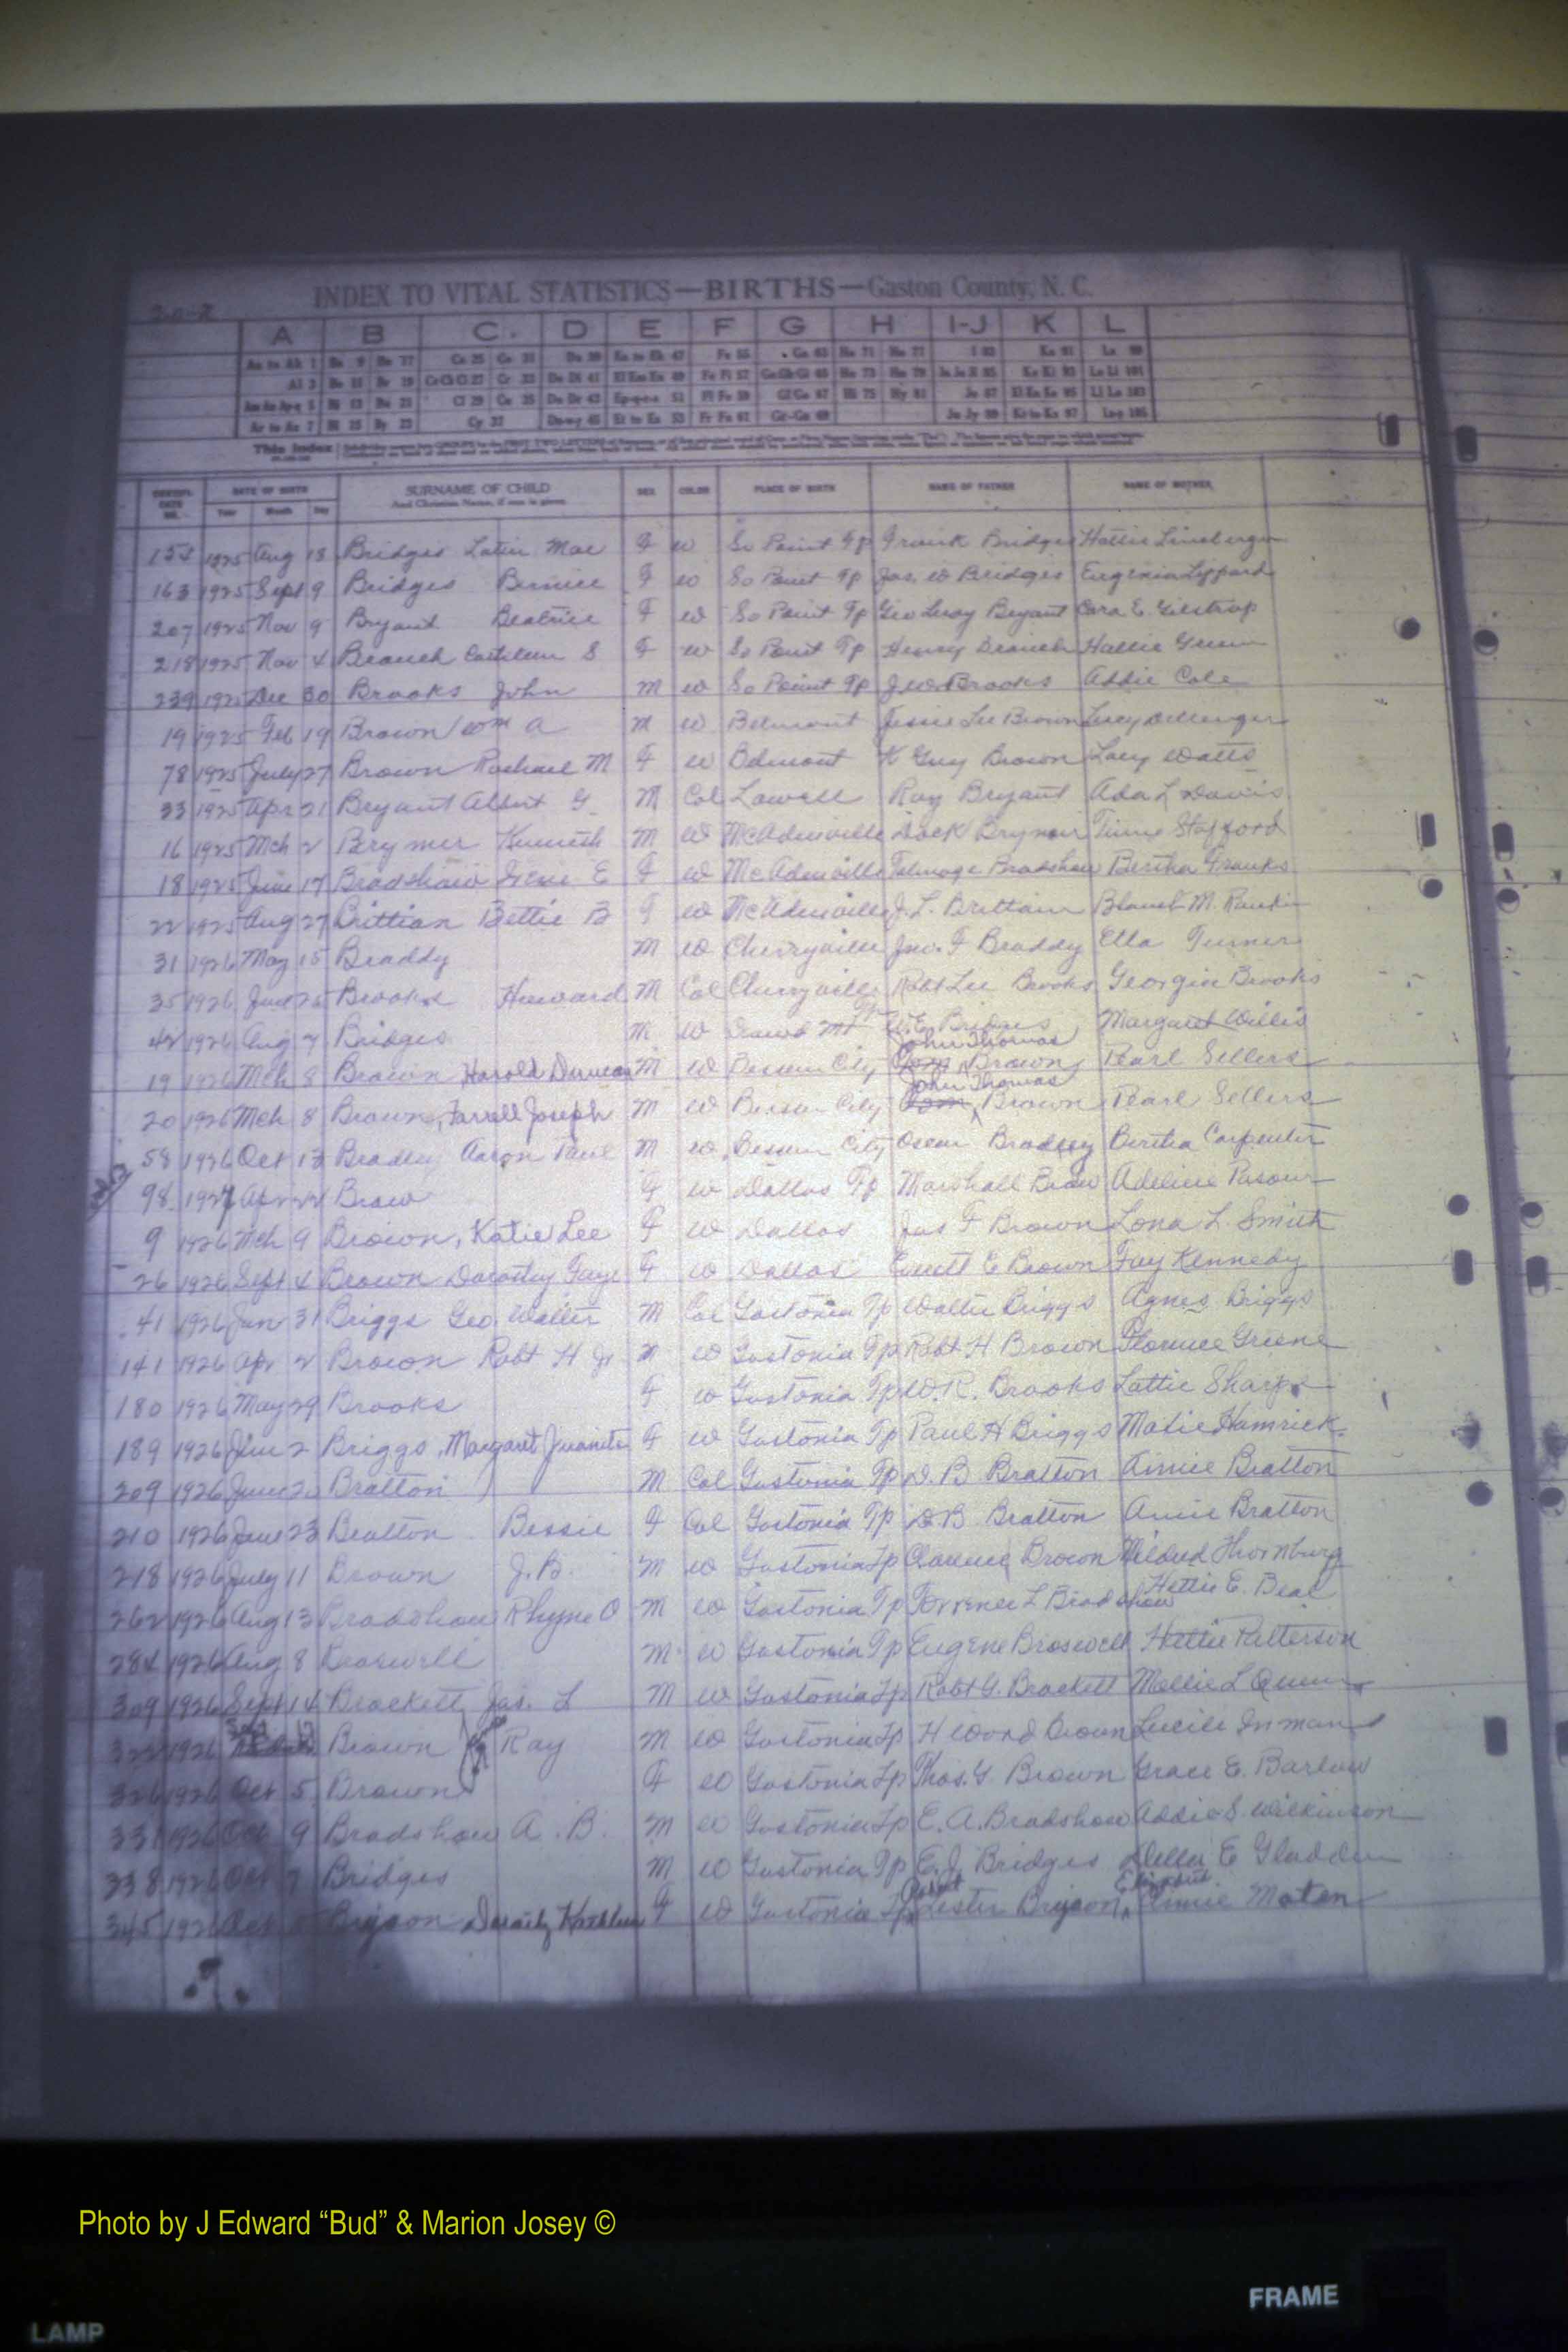 20-2
INDEX TO VITAL STATISTICS—BIRTHS—Gaston County, N. C.
A B C D E F G H I-J K L
This Index
DATE OF BIRTH SURNAME OF CHILD SEX COLOR PLACE OF BIRTH NAME OF FATHER NAME OF MOTHER
Year Month Day And Christian Name, if one is given
1925 Aug 18 Bridges Mae F W So Point Tp Frank Bridges Hattie Lineberger
163 1925 Sept 9 Bridges Bernice F W So Point Tp Jas. W Bridges Eugenia Lippard
207 1925 Nov 9 Bryant Beatrice F W So Point Tp Geo Leroy Bryant Cora E. Gilstrap
218 1925 Nov 4 Branch Cathleen S F W So Point Tp Henry Branch Hallie Green
239 1925 Dec 30 Brooks John M W So Point Tp J W Brooks Addie Cole
19 1925 Feb 19 Brown Wm A M W Belmont Jessie Lee Brown Lucy Dellenger
78 1925 July 27 Brown Rachael M F W Belmont K Guy Brown Lacy Watts
33 1925 Apr 21 Bryant Albert G M Col Lowell Ray Bryant Ada L Davis
16 1925 Mch 2 Brymer Kenneth M W McAdenville Jack Brymer Stafford
18 1925 June 17 Bradshaw Irene E F W McAdenville Talmage Bradshaw Bertha Franks
22 1925 Aug 27 Brittian Bettie B F W McAdenville J. L. Brittain Blanch M. Rankin
31 1926 May 15 Braddy M W Cherryville Jno. F Braddy Ella Turner
35 1926 June 25 Brooks Howard M Col Cherryville Robt Lee Brooks Georgia Brooks
42 1926 Aug 7 Bridges M W Bridges Margaret Willis
19 1926 Mch 8 Brown Harold Duncan M W Bessemer City John Thomas Tom Brown Pearl Sellers
20 1926 Mch 8 Brown, Farrell Joseph M W Bessemer City John Thomas Tom Brown Pearl Sellers
58 1926 Oct 13 Bradley Aaron Paul M W Bessemer City Oscar Bradley Bertha Carpenter
98 1927 Apr 22 Braw F W Dallas Tp Marshall Braw Adeline Pasour
9 1926 Mch 9 Brown, Katie Lee F W Dallas Jas F Brown Lona L. Smith
26 1926 Sept 4 Brown Dorothy Faye F W Dallas Everett E Brown Fay Kennedy
41 1926 Jan 31 Briggs Geo. Walter M Col Gastonia Tp Walter Briggs Agnes Briggs
141 1926 Apr 2 Brown Robt H Jr M W Gastonia Tp Robt H Brown Florence Greene
180 1926 May 29 Brooks F W Gastonia Tp W. R. Brooks Lattie Sharpe
189 1926 June 2 Briggs, Margaret Juanita F W Gastonia Tp Paul H Briggs Matie Hamrick
209 1926 June Bratton M Col Gastonia Tp D. B Bratton Annie Bratton
210 1926 June 23 Bratton Bessie F Col Gastonia Tp D B Bratton Annie Bratton
218 1926 July 11 Brown J. B. M W Gastonia Tp Clarence Brown Mildred Thornburg
262 1926 Aug 13 Bradshaw Rhyne O M W Gastonia Tp Torrence L Bradshaw Hettie E. Beal
284 1926 Aug 8 Braswell M W Gastonia Tp Eugene Braswell Hettie Patterson
309 1926 Sept 14 Brackett Jas. L M W Gastonia Tp Robt G. Brackett Mollie L Queen
322 1926 Brown Ray M W Gastonia Tp H Wood Brown Lucile Inman
326 1926 Oct 5 Brown F W Gastonia Tp Thos. G. Brown Grace E. Barlow
331 1926 Oct 9 Bradshaw A. B. M W Gastonia Tp E. A. Bradshaw Addie S. Wilkinson
338 1926 Oct 7 Bridges M W Gastonia Tp E. J. Bridges Della E Gladden
345 1926 Oct Bryson Dorothy Kathleen F W Gastonia Tp Lester Bryson Elizabeth Annie Maten
Photo by J Edward “Bud” & Marion Josey ©
FRAME
LAMP